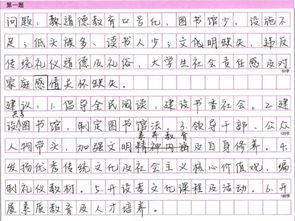 第一题
问题：教道德教育口号化，图书馆少，设施不
足；低头族多，读书人少；文化明缺失，违反
传统美德及礼俗，大学生社会责任感及对
家庭感情关怀缺失。
建议：1.倡导全民阅读，建设书香社会。2.建
共青
设图书馆，制定图书馆法。3.领导干部、公众
素养教育
人物带头，加强文明精神内涵及自身修养。4.
发扬优秀传统文化及社会主义核心价值观，编
制礼仪教材。5.开设孝文化课程及活动。6.开
展素质教育及人才培养。